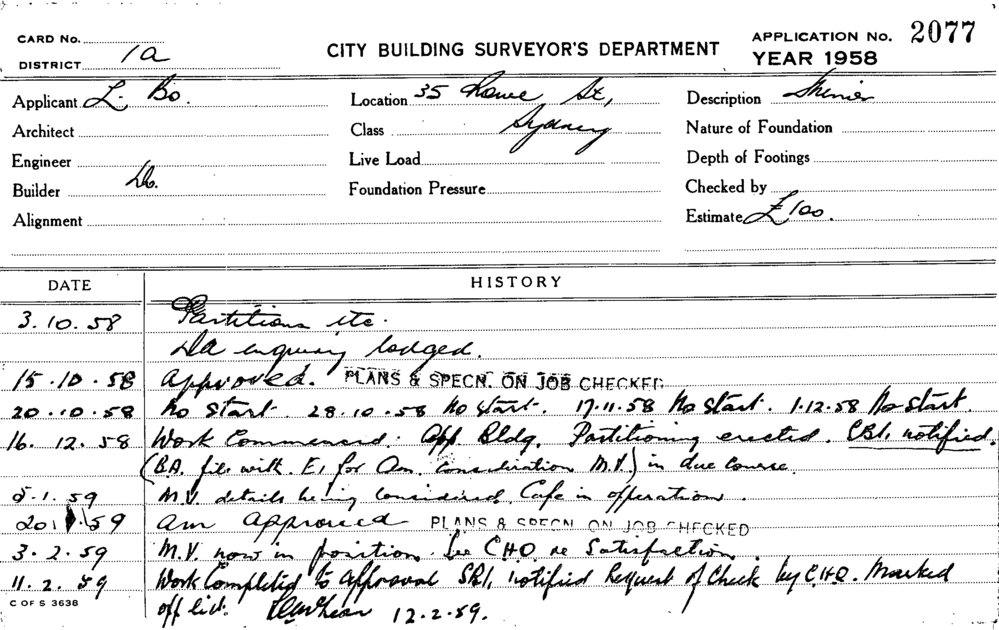 CARD No.
DISTRICT 1a
CITY BUILDING SURVEYOR'S DEPARTMENT
APPLICATION No. 2077
YEAR 1958
Applicant L. Bo.
Location 35 Rowe St,
Description
Architect
Class Sydney
Nature of Foundation
Engineer
Live Load
Depth of Footings
Builder Do.
Foundation Pressure
Checked by
Alignment
Estimate £100.
DATE HISTORY
3.10.58 Partitions etc.
Da enquiry lodged.
15.10.58 Approved. PLANS & SPECN. ON JOB CHECKED
20.10.58 No start. 28.10.58 No start. 17.11.58 No start. 1.12.58 No start.
16.12.58 Work Commenced. App. Bldg. Partitioning erected. CBI. notified.
(BA. file with E, for Am. consideration M.V.) in due course.
5.1.59 M.V. details being considered. Cafe in operation.
20.1.59 am approved PLANS & SPECN ON JOB CHECKED
3.2.59 M.V. now in position. See C.H.O. re Satisfaction.
11.2.59 Work Completed to approval SBI. notified Request of Check by C.H.O. Marked
off list. 12.2.59.
C OF S 3638